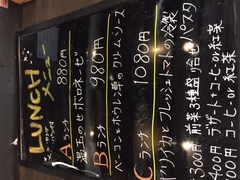 LUNCH
メニュー
Aランチ 880円
温玉のせボロネーゼ
Bランチ 980円
ベーコンとホウレン草のクリームソース
Cランチ 1080円
フレッシュトマトの冷製パスタ
300円 前菜3種盛り合せ
400円 デザート+コーヒーor紅茶
コーヒーor紅茶